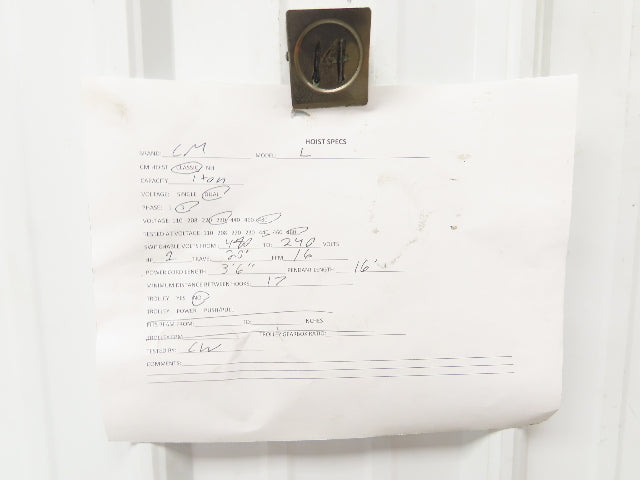 14
HOIST SPECS
BRAND: CM MODEL L
CM HOIST CLASSIC NH
CAPACITY 1 ton
VOLTAGE: SINGLE DUAL
PHASE: 1 3
VOLTAGE: 110 208 220 230 440 460
TESTED AT VOLTAGE: 110 208 220 230 440 460 480
SWITCHABLE VOLTS FROM 480 TO: 240 VOLTS
HP 2 TRAVEL 20' FPM 16
POWER CORD LENGTH: 3'6" PENDANT LENGTH: 16'
MINIMUM DISTANCE BETWEEN HOOKS: 17
TROLLY YES NO
TROLLY POWER PUSH/PULL
FITS BEAM FROM: TO: INCHES
TROLLEY FPM TROLLEY GEARBOX RATIO:
TESTED BY: CW
COMMENTS: